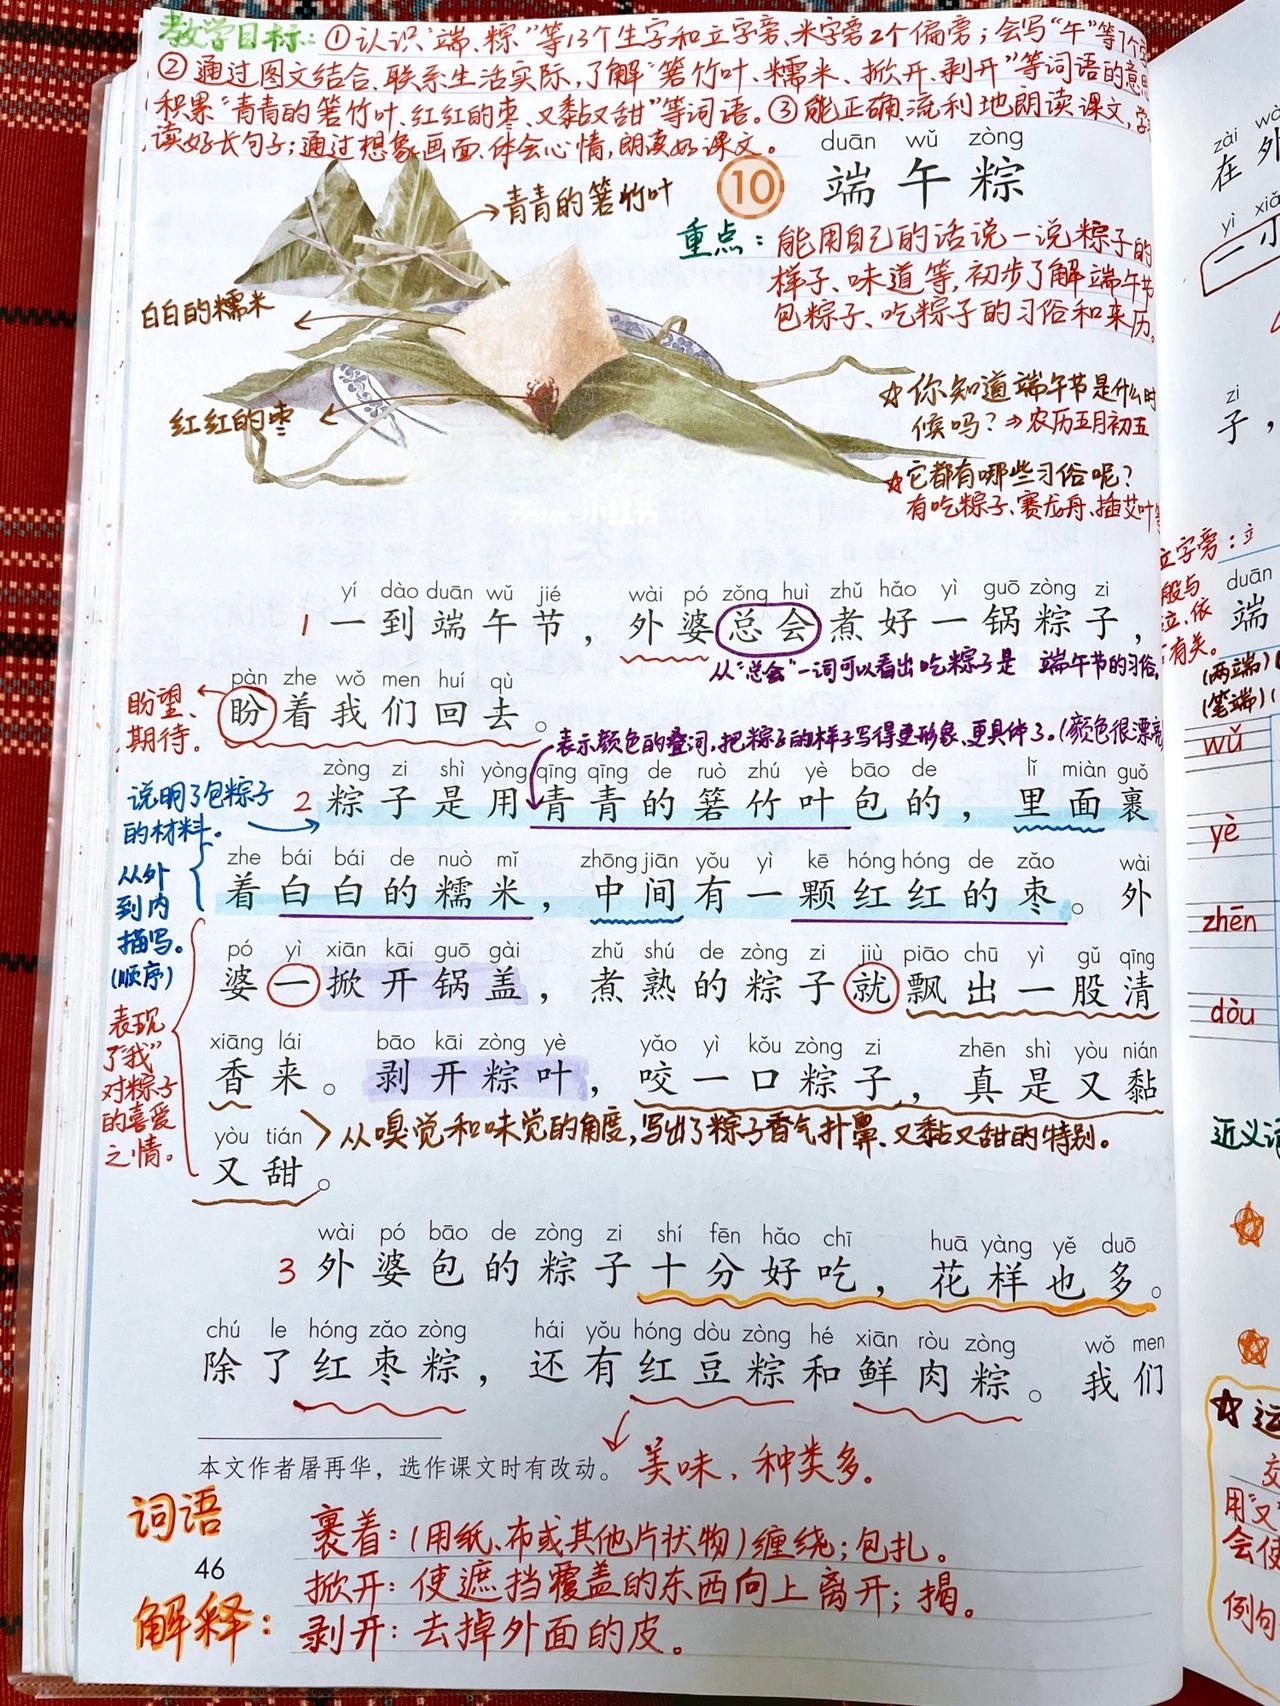 教学目标:①认识“端、粽”等13个生字和立字旁、米字旁2个偏旁;会写“午”等7个
②通过图文结合、联系生活实际,了解“箬竹叶、糯米、掀开、剥开”等词语的意思
积累“青青的箬竹叶、红红的枣、又黏又甜”等词语。③能正确、流利地朗读课文,学
读好长句子;通过想象画面、体会心情,朗读好课文。
duān wǔ zòng
10 端午粽
青青的箬竹叶
重点:能用自己的话说一说粽子的
样子、味道等,初步了解端午节
包粽子、吃粽子的习俗和来历。
白白的糯米
红红的枣
☆你知道端午节是什么时
候吗?⇒农历五月初五
☆它都有哪些习俗呢?
有吃粽子、赛龙舟、插艾叶等
小红书
yí dào duān wǔ jié wài pó zǒng huì zhǔ hǎo yì guō zòng zi
1 一到端午节,外婆总会煮好一锅粽子,
从“总会”一词可以看出吃粽子是 端午节的习俗。
pàn zhe wǒ men huí qù
盼着我们回去。
盼望、
期待。
表示颜色的叠词,把粽子的样子写得更形象、更具体了。(颜色很漂亮
zòng zi shì yòng qīng qīng de ruò zhú yè bāo de lǐ miàn guǒ
2 粽子是用青青的箬竹叶包的,里面裹
说明了包粽子
的材料。
zhe bái bái de nuò mǐ zhōng jiān yǒu yì kē hóng hóng de zǎo wài
着白白的糯米,中间有一颗红红的枣。外
从外
到内
描写。
(顺序)
pó yì xiān kāi guō gài zhǔ shú de zòng zi jiù piāo chū yì gǔ qīng
婆一掀开锅盖,煮熟的粽子就飘出一股清
xiāng lái bāo kāi zòng yè yǎo yì kǒu zòng zi zhēn shì yòu nián
香来。剥开粽叶,咬一口粽子,真是又黏
表现
了“我”
对粽子
的喜爱
之情。
yòu tián
又甜。
从嗅觉和味觉的角度,写出了粽子香气扑鼻、又黏又甜的特别。
wài pó bāo de zòng zi shí fēn hǎo chī huā yàng yě duō
3 外婆包的粽子十分好吃,花样也多。
chú le hóng zǎo zòng hái yǒu hóng dòu zòng hé xiān ròu zòng wǒ men
除了红枣粽,还有红豆粽和鲜肉粽。我们
美味,种类多。
本文作者屠再华,选作课文时有改动。
词语
解释:
裹着:(用纸、布或其他片状物)缠绕;包扎。
掀开:使遮挡覆盖的东西向上离开;揭。
剥开:去掉外面的皮。
46
zài
在外
yì xiǎ
一小
zi
子,
立字旁:立
般与
立、依
有关。
duān
端
(两端)
(笔端)
wǔ
yè
zhēn
dòu
近义词
☆运
交
用“又
会使
例句